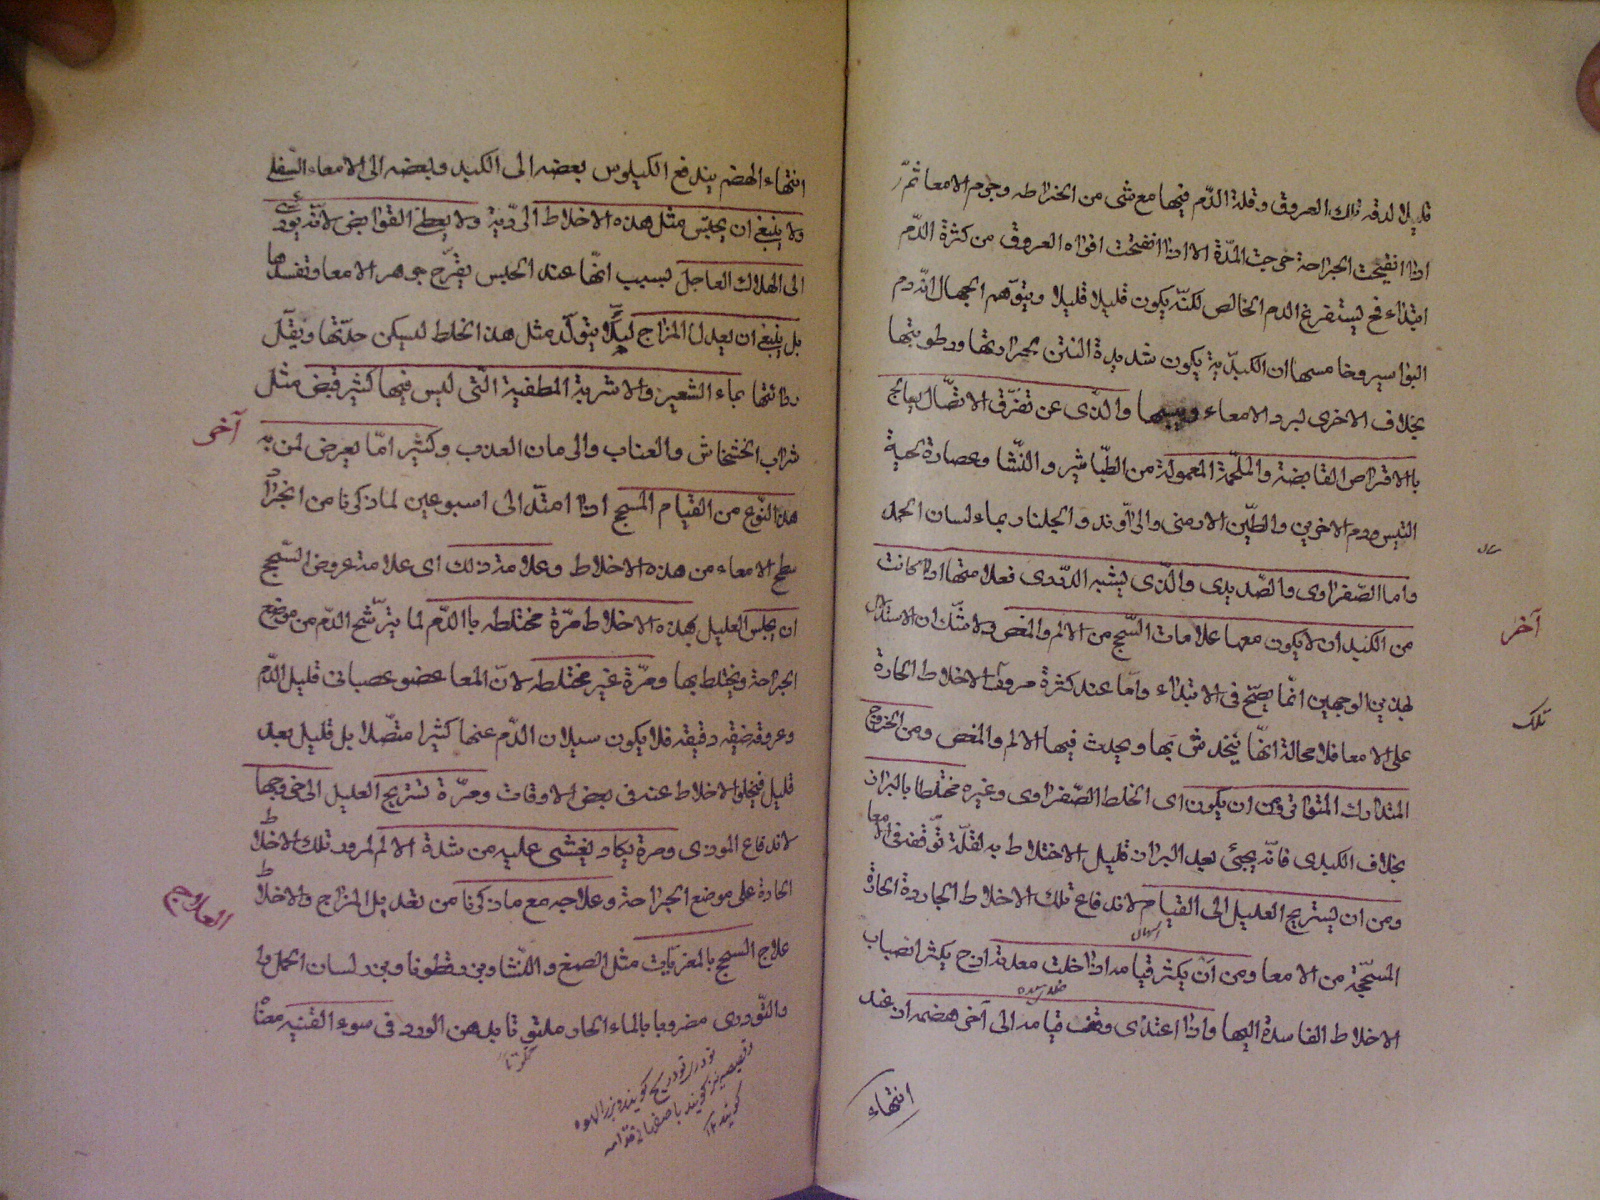 قليلا لدقة تلك العروق وقلة الدّم فيها مع شى من الخراطه وجرم الامعا ثمّ
اذا انفتحت الجراحة خرجت المدّة الا اذا انفتحت افواه العروق من كثرة الدّم
ابتداء فح يستفرغ الدم الخالص لكنّه يكون قليلا قليلا ويتوهم الجهال انه دم
البواسير وخامسها ان الكبديّة يكون شديدة النتن بحرارتها ورطوبتها
بخلاف الاخرى لبرد الامعاء ويبسها والذى عن تفرّق الاتصّال يعالج
با الاقراص القابضة والملحمة المعمولة من الطّباشير والنّشا وعصارة لحية
التيس ودم الاخوين والطّين الارمنى والرّاوند والجلنار بماء لسان الحمل
واما الصّفراوى والصّديدى والذى يشبه الدّردى فعلامتها اذا كانت
من الكبد ان لا يكون معها علامات السّحج من الالم والمغص ولا شكّ ان الاستدلال
بهذين الوجهين انّما يصحّ فى الابتداء وامّا عند كثرة مرور الاخلاط الحادة
على الامعا فلا محالة انّها يتخدش بها ويحدث فيها الالم والمغص ومن الخروج
المتدارك المتواتر ومن ان يكون اى الخلط الصّفراوى وغيره مختلطا بالبراز
بخلاف الكبدى فانّه يجئ بعد البراز قليل الاختلاط به لقلّة توقفه فى الامعا
ومن ان يستريح العليل الى القيام لاندفاع تلك الاخلاط الجاردة الحادة
المسحّجة من الامعا ومن ان يكثر قيامه اذا خلت معدته اذ ح يكثر انصباب
الاخلاط الفاسدة اليها واذا اغتذى وقف قيامه الى آخر هضمه اذ عند
انتهاء
آخر
تلك
انتهاء الهضم يندفع الكيلوس بعضه الى الكبد وبعضه الى الامعاء السّفلى
ولا ينبغى ان يحبس مثل هذه الاخلاط الرّدية ولا يعطى القوابض لانّه يؤدى
الى الهلاك العاجل بسبب انّها عند الحبس يقرّح جوهر الامعا وتفسدها
بل ينبغى ان يعدل المزاج لئلّا يتولّد مثل هذا الخلط ليسكن حدّتها ويقلّ
ردائتها بماء الشعير والاشربة المطفية الّتى ليس فيها كثير قبض مثل
شراب الخشخاش والعناب والرمان العذب وكثير امّا يعرض لمن به
هذا النّوع من القيام السحج اذا امتدّ الى اسبوعين لما ذكرنا من انجراد
سطح الامعاء من هذه الاخلاط وعلامة ذلك اى علامة عروض السّحج
ان يجلس العليل بهذه الاخلاط مرّة مختلطه باالدّم لما يترشّح الدّم من موضع
الجراحة ويختلط بها ومرّة غير مختلطه لانّ المعا عضو عصبانى قليل الدّم
وعروقه ضيقه دقيقه فلا يكون سيلان الدّم عنها كثيرا متّصلا بل قليل بعد
قليل فيخلو الاخلاط عنه فى بعض الاوقات ومرّة يستريح العليل الى خروجها
لاندفاع الموذى ومرة يكاد يغشى عليه من شدة الالم لمرور تلك الاخلاط
الحادة على موضع الجراحة وعلاجه مع ما ذكرنا من تعديل المزاج والاخلاط
علاج السحج بالمغريات مثل الصمغ والنّشا وبزرقطونا وبزر لسان الحمل
والتّودرى مضروبا بالماء الحار ملتوتا بدهن الورد فى سوء القنيه
آخر
العلاج